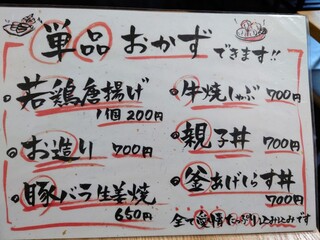 単品おかずできます!!
若鶏唐揚げ
1個 200円
お造り 700円
豚バラ生姜焼
650円
牛焼しゃぶ 700円
親子丼 700円
釜あげしらす丼
700円
全て愛情たっぷり込み込みです